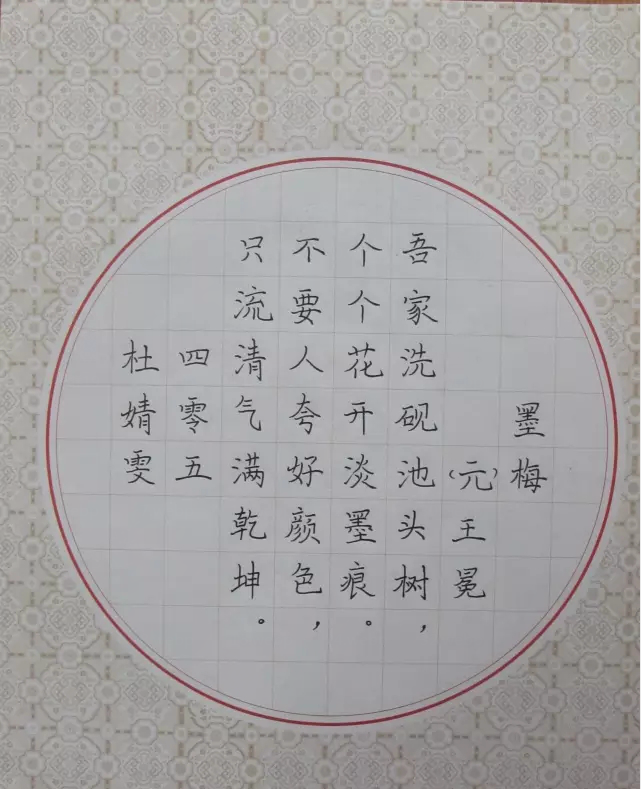 墨梅
(元)王冕
吾家洗砚池头树，
个个花开淡墨痕。
不要人夸好颜色，
只流清气满乾坤。
四零五
杜婧雯